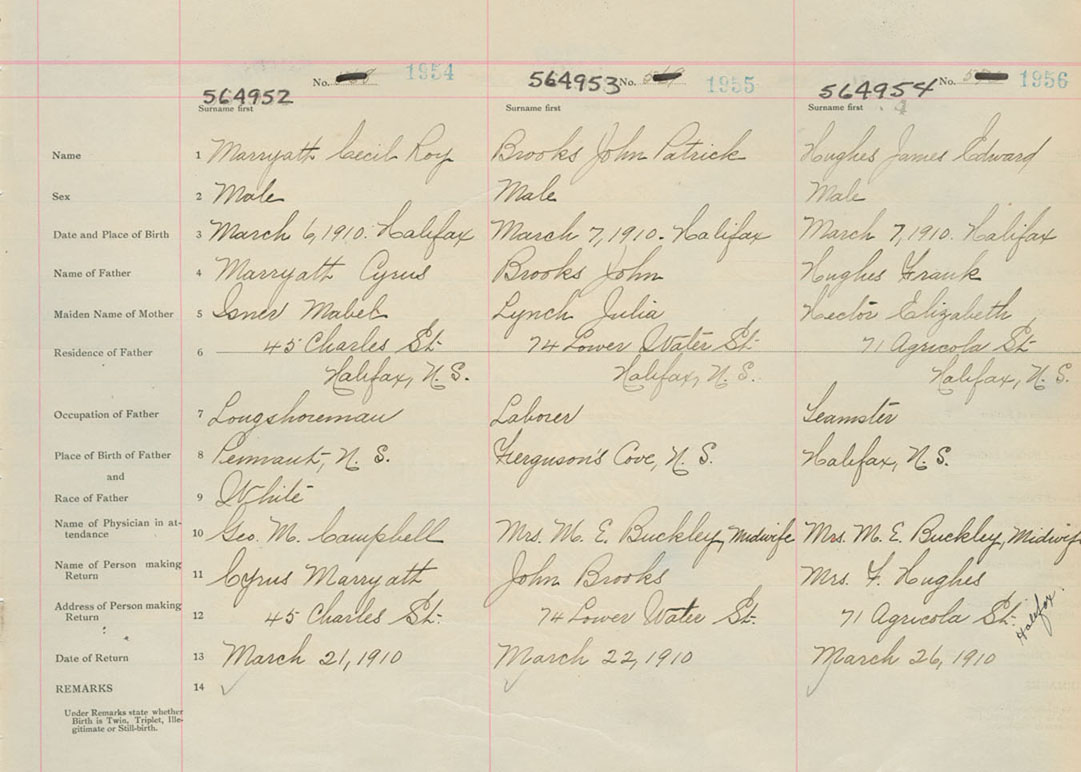 No. 1954 564953 No. 1955 No. 1956
564952 564954
Surname first Surname first Surname first
Name 1 Marryath Cecil Roy Brooks John Patrick Hughes James Edward
Sex 2 Male Male Male
Date and Place of Birth 3 March 6, 1910. Halifax March 7, 1910. Halifax March 7, 1910. Halifax
Name of Father 4 Marryath Cyrus Brooks John Hughes Frank
Maiden Name of Mother 5 Isner Mabel Lynch Julia Hector Elizabeth
Residence of Father 6 45 Charles St. 74 Lower Water St. 71 Agricola St.
Halifax, N. S. Halifax, N. S. Halifax, N. S.
Occupation of Father 7 Longshoreman Laborer Teamster
Place of Birth of Father 8 Pennant, N. S. Ferguson's Cove, N. S. Halifax, N. S.
and
Race of Father 9 White
Name of Physician in at-
tendance 10 Geo. M. Campbell Mrs. M. E. Buckley, Midwife Mrs. M. E. Buckley, Midwife
Name of Person making
Return 11 Cyrus Marryath John Brooks Mrs. F. Hughes
Address of Person making
Return 12 45 Charles St. 74 Lower Water St. 71 Agricola St. Halifax.
Date of Return 13 March 21, 1910 March 22, 1910 March 26, 1910
REMARKS 14 ✓
Under Remarks state whether
Birth is Twin, Triplet, Ille-
gitimate or Still-birth.